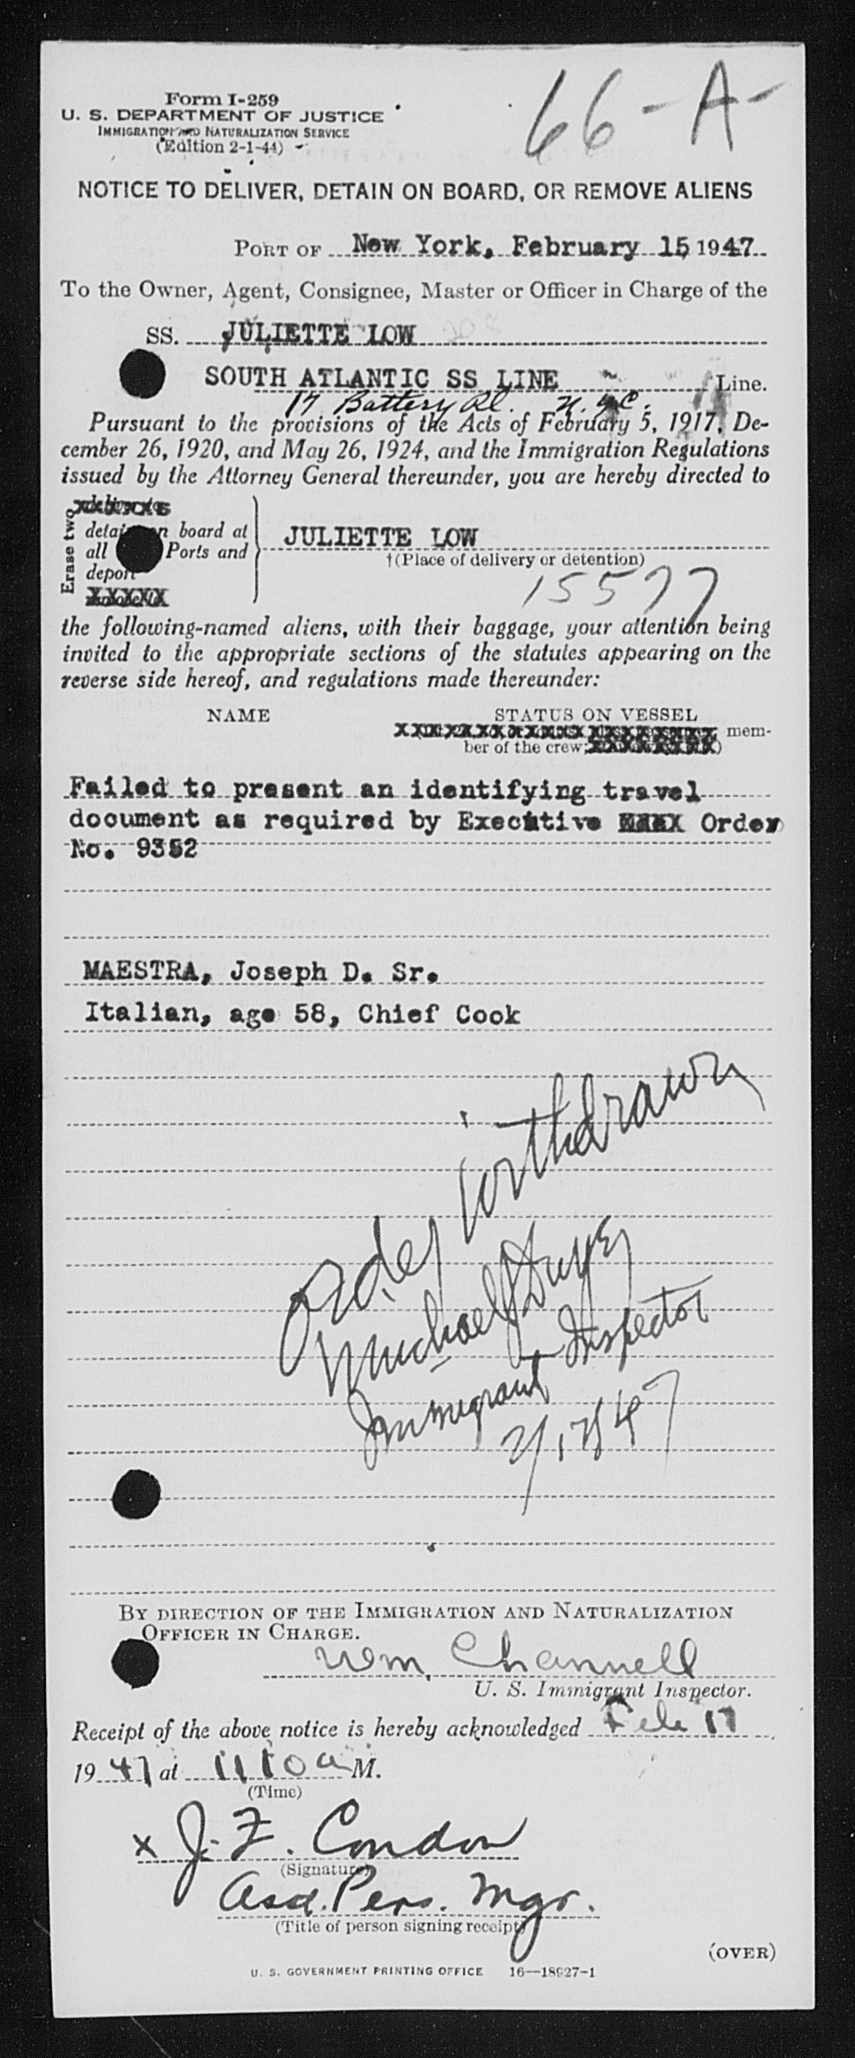 66-A-
Form I-259
U. S. DEPARTMENT OF JUSTICE
IMMIGRATION AND NATURALIZATION SERVICE
(Edition 2-1-44)
NOTICE TO DELIVER, DETAIN ON BOARD, OR REMOVE ALIENS
PORT OF New York, February 15 1947
To the Owner, Agent, Consignee, Master or Officer in Charge of the
SS. JULIETTE LOW
SOUTH ATLANTIC SS LINE Line.
17 Battery Pl. N.Y.C.
Pursuant to the provisions of the Acts of February 5, 1917, De-
cember 26, 1920, and May 26, 1924, and the Immigration Regulations
issued by the Attorney General thereunder, you are hereby directed to
Erase two
detain on board at
all Ports and
deport
JULIETTE LOW
†(Place of delivery or detention)
15577
the following-named aliens, with their baggage, your attention being
invited to the appropriate sections of the statutes appearing on the
reverse side hereof, and regulations made thereunder:
NAME STATUS ON VESSEL
mem-
ber of the crew;
Failed to present an identifying travel
document as required by Executive Order
No. 9352
MAESTRA, Joseph D. Sr.
Italian, age 58, Chief Cook
Order withdrawn
Michael J Dwyer
Immigrant Inspector
2/17/47
BY DIRECTION OF THE IMMIGRATION AND NATURALIZATION
OFFICER IN CHARGE.
Wm. Channell
U. S. Immigrant Inspector.
Receipt of the above notice is hereby acknowledged Feb 17
1947 at 1110 a M.
(Time)
x J. F. Condon
(Signature)
Asst. Pers. Mgr.
(Title of person signing receipt)
(OVER)
U. S. GOVERNMENT PRINTING OFFICE 16—18927-1